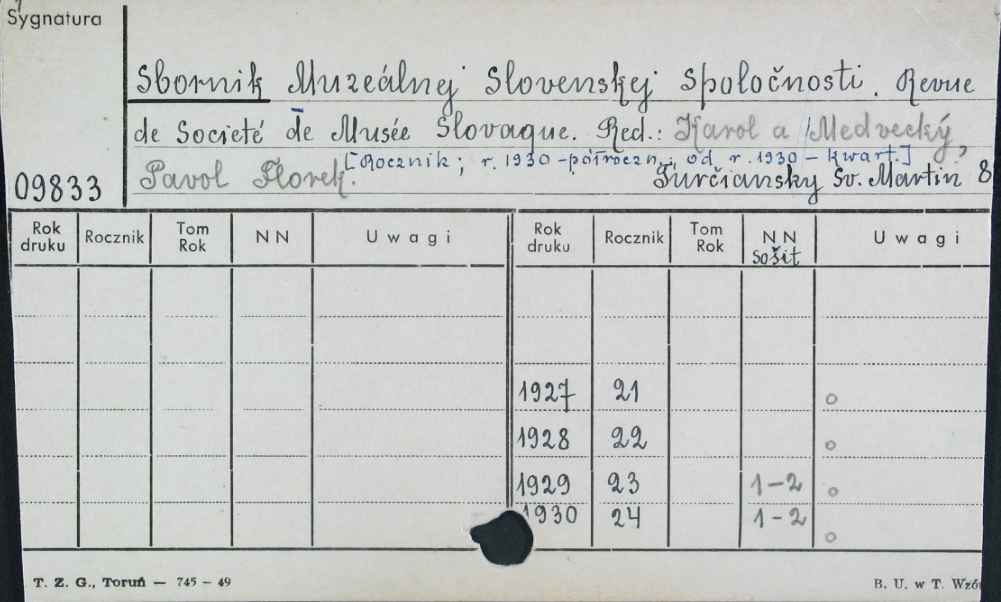 Sygnatura
Sbornik Muzeálnej Slovenskej Spoločnosti. Revue
de Societé de Musée Slovaque. Red.: Karol a Medvecký,
[Rocznik; r. 1930 - półroczn.; od r. 1930 - kwart.]
09833 Pavol Florek. Turčiansky Sv. Martin 8
Rok druku Rocznik Tom Rok NN Uwagi Rok druku Rocznik Tom Rok NN sošit Uwagi
1927 21 o
1928 22 o
1929 23 1-2 o
1930 24 1-2 o
T. Z. G., Toruń — 745 - 49 B. U. w T. Wzó